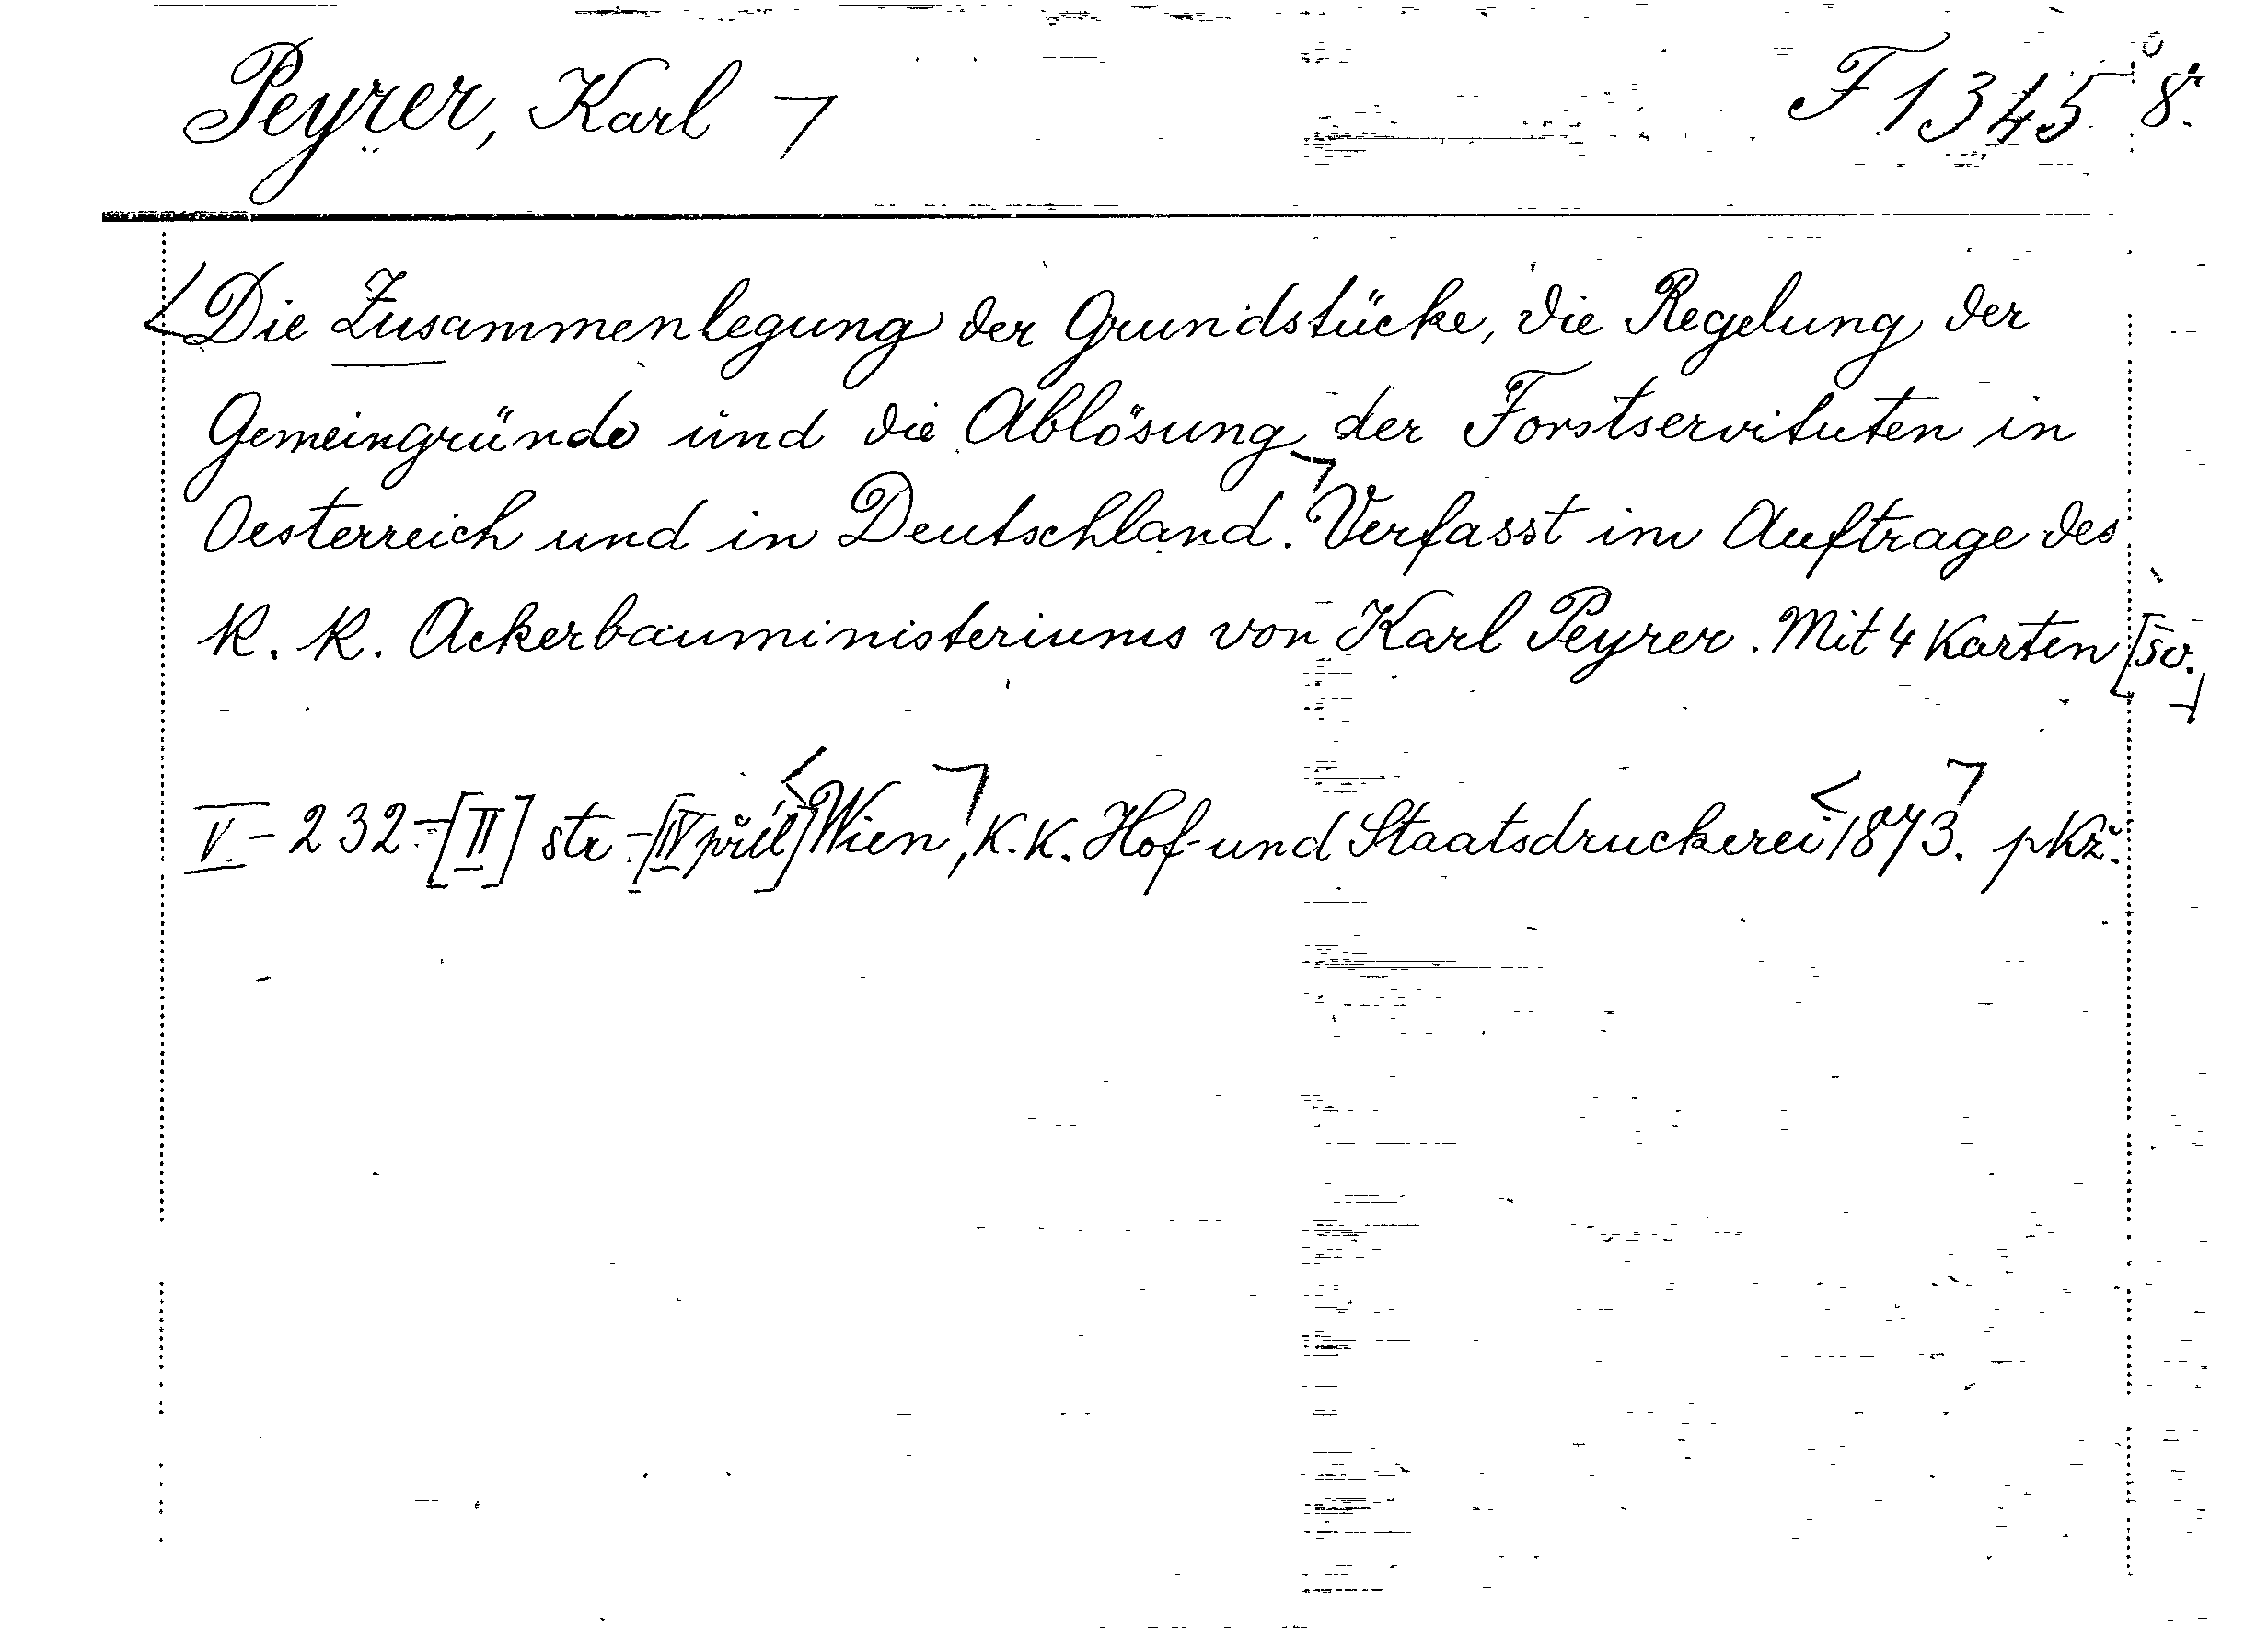 Peyrer, Karl ㄱ F 1345 8°.
<Die Zusammenlegung der Grundstücke, die Regelung der
Gemeingründe und die Ablösung der Forstservituten in
Oesterreich und in Deutschland.ㄱ Verfasst im Auftrage des
K. K. Ackerbauministeriums von Karl Peyrer. Mit 4 Karten [sv.]
V - 232 - [II] str - [IV příl] <Wienㄱ, K. K. Hof- und Staatsdruckerei <1873ㄱ. pKž.